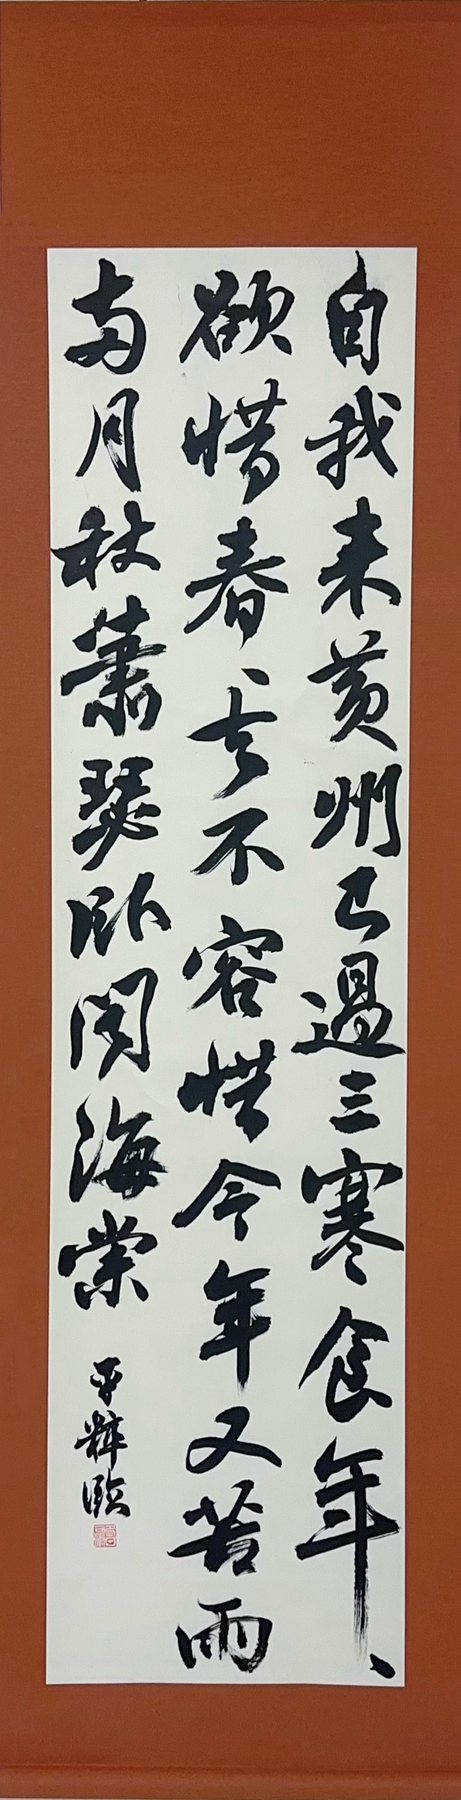 自我来黄州已過三寒食年〻
欲惜春〻去不容惜今年又苦雨
両月秋蕭瑟臥聞海棠
平粋臨